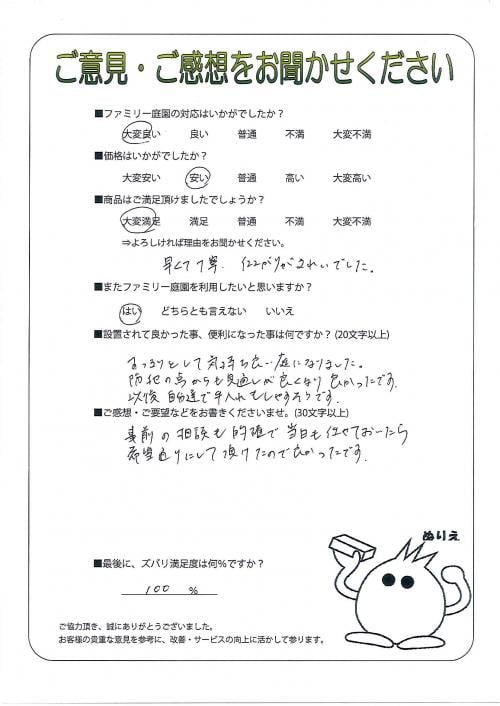 ご意見・ご感想をお聞かせください
■ファミリー庭園の対応はいかがでしたか？
大変良い 良い 普通 不満 大変不満
■価格はいかがでしたか？
大変安い 安い 普通 高い 大変高い
■商品はご満足頂けましたでしょうか？
大変満足 満足 普通 不満 大変不満
⇒よろしければ理由をお聞かせください。
早くて丁寧. 仕上がりがきれいでした。
■またファミリー庭園を利用したいと思いますか？
はい どちらとも言えない いいえ
■設置されて良かった事、便利になった事は何ですか？(20文字以上)
すっきりとして気持ち良い庭になりました。
防犯の点からも見通しが良くなり良かったです.
以後自分達で手入れもしやすそうです.
■ご感想・ご要望などをお書きくださいませ。(30文字以上)
事前の相談も的確で当日も任せておいたら
希望通りにして頂けたので良かったです.
ぬりえ
■最後に、ズバリ満足度は何%ですか？
100 %
ご協力頂き、誠にありがとうございました。
お客様の貴重な意見を参考に、改善・サービスの向上に活かして参ります。